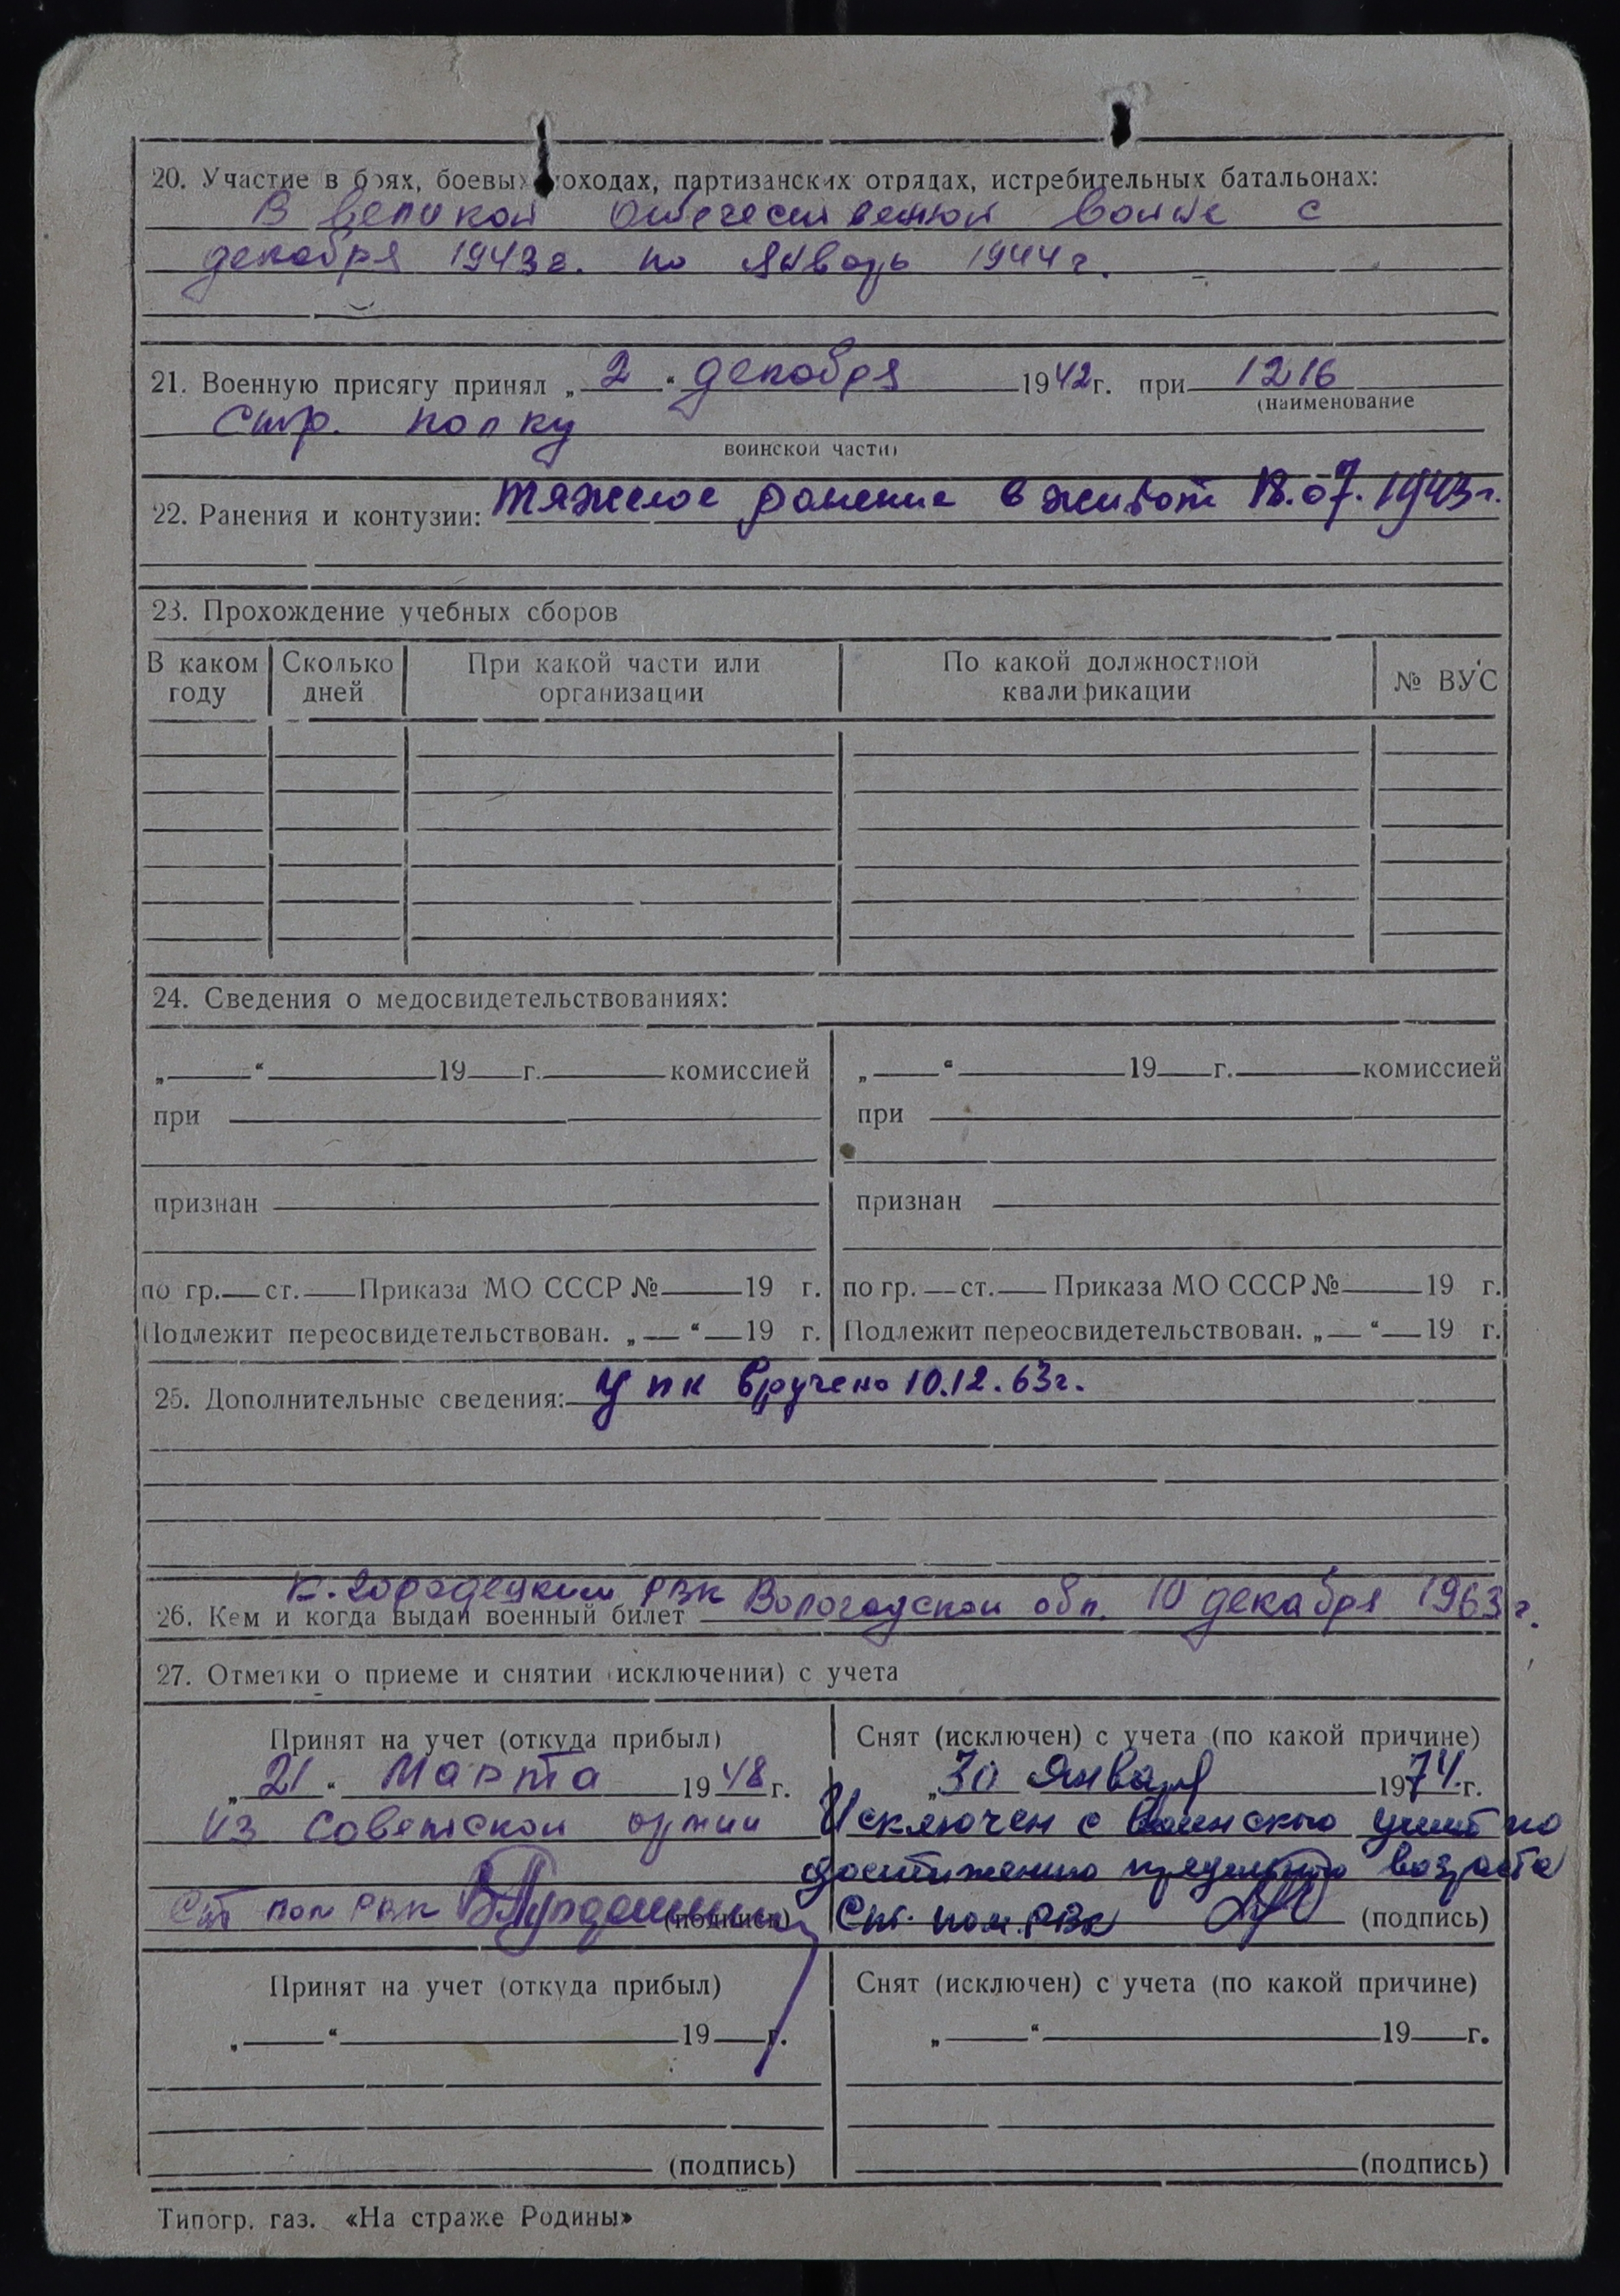 20. Участие в боях, боевых походах, партизанских отрядах, истребительных батальонах:
В Великой Отечественной войне с
декабря 1943г. по январь 1944г.
21. Военную присягу принял „ 2 “ декабря 1942г. при 1216
(наименование
стр. полку
воинской части)
22. Ранения и контузии: Тяжелое ранение в живот 18.07.1943г.
23. Прохождение учебных сборов
В каком году Сколько дней При какой части или организации По какой должностной квалификации № ВУС
24. Сведения о медосвидетельствованиях:
„ “ 19 г. комиссией „ “ 19 г. комиссией
при при
признан признан
по гр. ст. Приказа МО СССР № 19 г. по гр. ст. Приказа МО СССР № 19 г.
Подлежит переосвидетельствован. „ “ 19 г. Подлежит переосвидетельствован. „ “ 19 г.
25. Дополнительные сведения: УПК вручено 10.12.63г.
К.Городецким РВК
26. Кем и когда выдан военный билет Вологодской обл. 10 декабря 1963г.
27. Отметки о приеме и снятии (исключении) с учета
Принят на учет (откуда прибыл) Снят (исключен) с учета (по какой причине)
„ 21 “ Марта 1948г. „ 30 Января 1974.г.
из Советской армии Исключен с воинского учета по
достижению предельного возраста
Ст пом РВК (подпись) Ст. пом. РВК (подпись)
Принят на учет (откуда прибыл) Снят (исключен) с учета (по какой причине)
„ “ 19 г. „ “ 19 г.
(подпись) (подпись)
Типогр. газ. «На страже Родины»